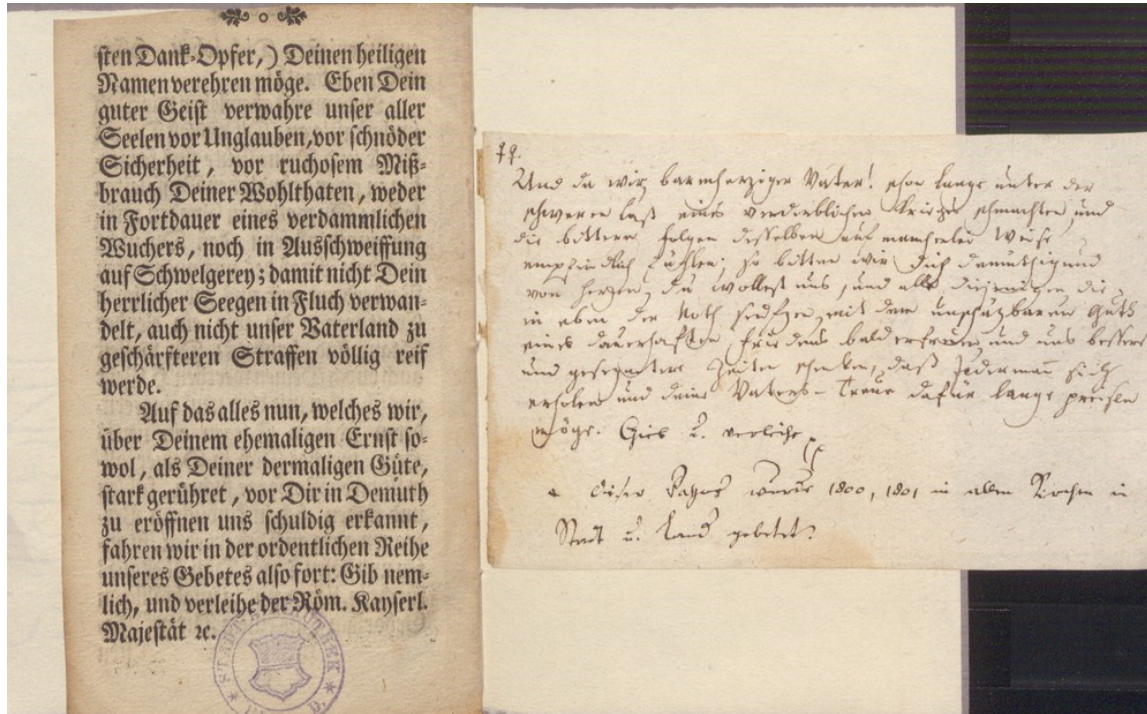 sten Dank-Opfer,) Deinen heiligen
Namen verehren möge. Eben Dein
guter Geist verwahre unser aller
Seelen vor Unglauben, vor schnöder
Sicherheit, vor ruchosem Miß-
brauch Deiner Wohlthaten, weder
in Fortdauer eines verdammlichen
Wuchers, noch in Ausschweiffung
auf Schwelgerey; damit nicht Dein
herrlicher Seegen in Fluch verwan-
delt, auch nicht unser Vaterland zu
geschärfteren Straffen völlig reif
werde.
Auf das alles nun, welches wir,
über Deinem ehemaligen Ernst so-
wol, als Deiner dermaligen Güte,
stark gerühret, vor Dir in Demuth
zu eröffnen uns schuldig erkannt,
fahren wir in der ordentlichen Reihe
unseres Gebetes also fort: Gib nem-
lich, und verleihe der Röm. Kayserl.
Majestät ꝛc.
Und da wir, barmherziger Vater! schon lange unter der
schweren Last eines verderblichen Krieges schmachten, und
die bittern Folgen desselben auf mancherlei Weise
empfindlich fühlen; so bitten wir Dich demüthig und
von Herzen, du wollest uns, und alle diejenigen die
in eben der Noth seufzen, mit dem unschäzbaren Guth
eines dauerhaften Friedens bald erfreuen und uns bessere
und gesegnetere Zeiten schenken, daß Jedermañ sich
erholen und deine Vaters-Treue dafür lange preisen
möge. Gieb u. verleihe
Dieser Passus wurde 1800, 1801 in allen Kirchen in
Stadt u. Land gebetet.